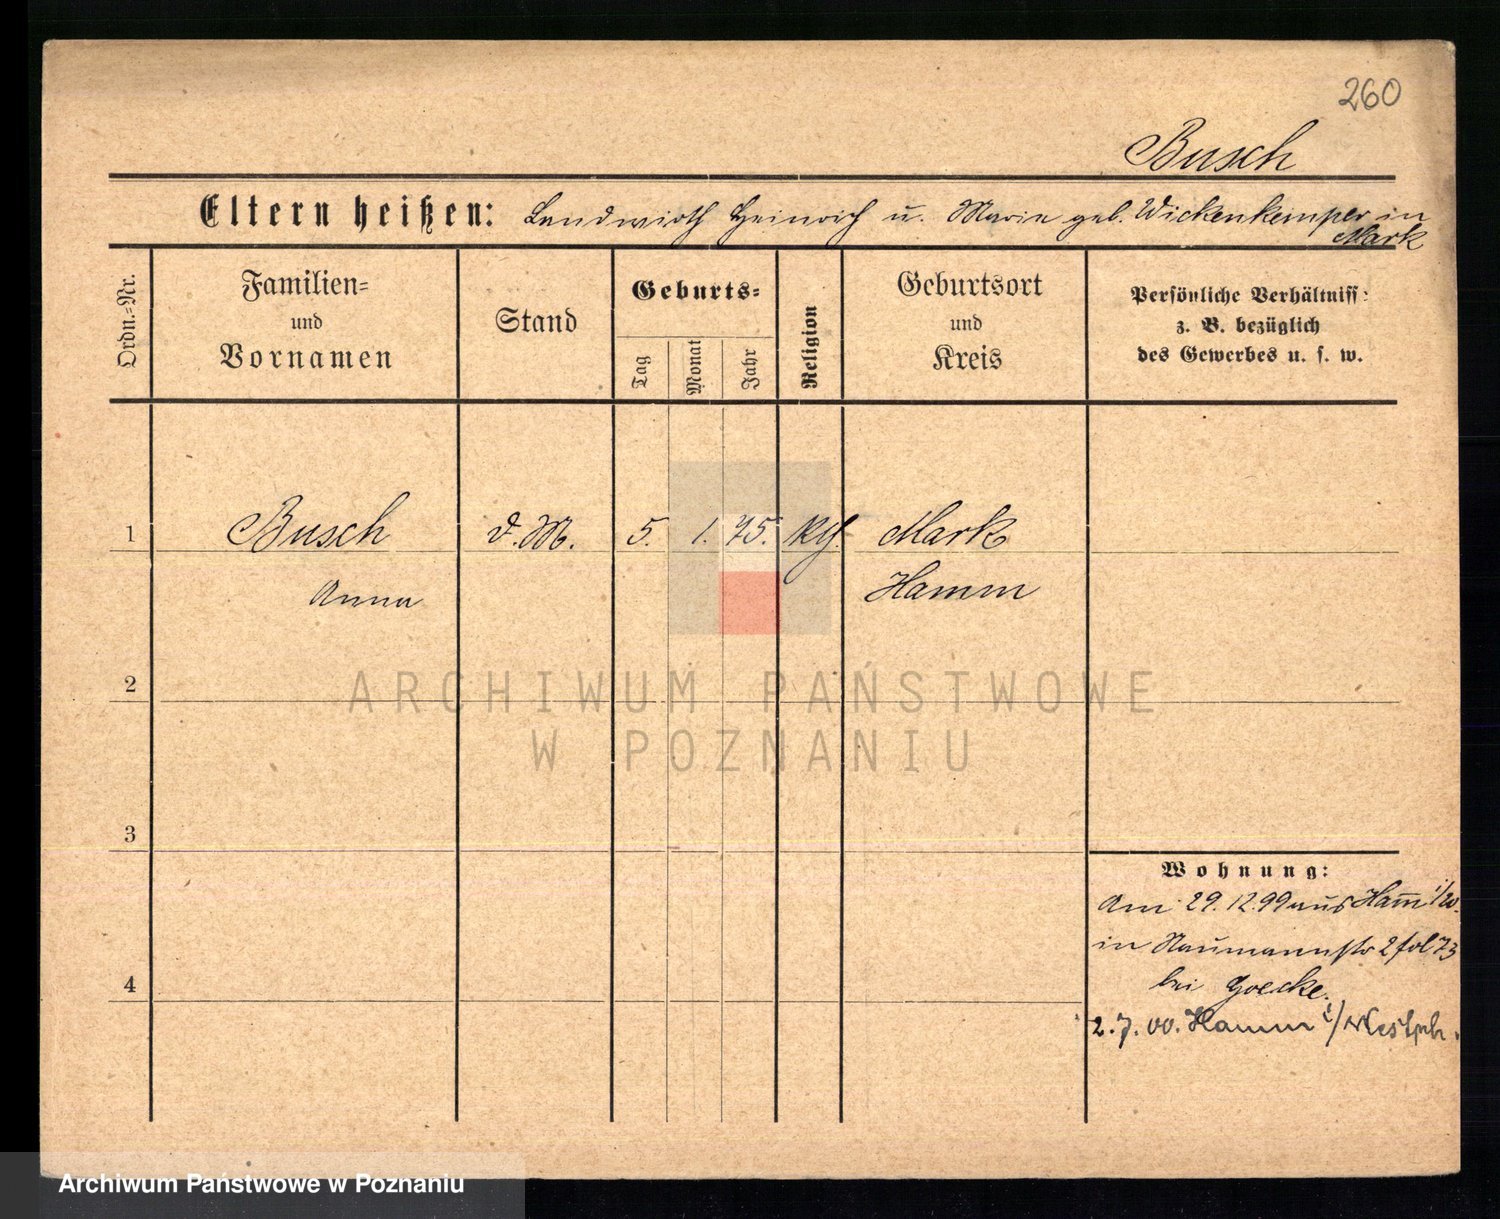 260
Busch
Eltern heißen: Landwirth Heinrich u. Marie geb. Wickenkemper in
Mark
Ordn.=Nr.
Familien=
und
Vornamen
Stand
Geburts=
Tag
Monat
Jahr
Religion
Geburtsort
und
Kreis
Persönliche Verhältniss:
z. B. bezüglich
des Gewerbes u. s. w.
1
Busch
d. M.
5.
1.
75.
kth.
Mark
Anna
Hamm
2
ARCHIWUM PAŃSTWOWE
W POZNANIU
3
Wohnung:
Am 29. 12. 99 aus Ham̅ i/W.
in Naumannstr 2 fol 73
bei Goecke.
4
2. 7. 00. Hamm i/Westph.
Archiwum Państwowe w Poznaniu